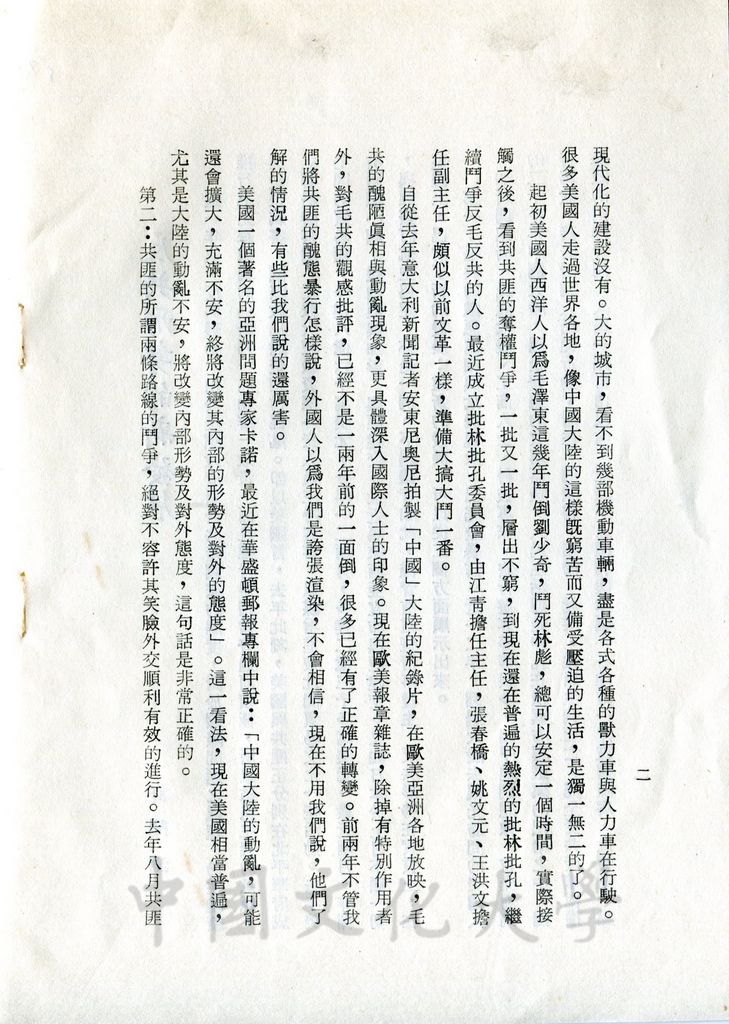 二
現代化的建設沒有。大的城市，看不到幾部機動車輛，盡是各式各種的獸力車與人力車在行駛。
很多美國人走過世界各地，像中國大陸的這樣既窮苦而又備受壓迫的生活，是獨一無二的了。
起初美國人西洋人以爲毛澤東這幾年鬥倒劉少奇，鬥死林彪，總可以安定一個時間，實際接
觸之後，看到共匪的奪權鬥爭，一批又一批，層出不窮，到現在還在普遍的熱烈的批林批孔，繼
續鬥爭反毛反共的人。最近成立批林批孔委員會，由江靑擔任主任，張春橋、姚文元、王洪文擔
任副主任，頗似以前文革一樣，準備大搞大鬥一番。
自從去年意大利新聞記者安東尼奧尼拍製「中國」大陸的紀錄片，在歐美亞洲各地放映，毛
共的醜陋眞相與動亂現象，更具體深入國際人士的印象。現在歐美報章雜誌，除掉有特別作用者
外，對毛共的觀感批評，已經不是一兩年前的一面倒，很多已經有了正確的轉變。前兩年不管我
們將共匪的醜態暴行怎樣說，外國人以爲我們是誇張渲染，不會相信，現在不用我們說，他們了
解的情況，有些比我們說的還厲害。
美國一個著名的亞洲問題專家卡諾，最近在華盛頓郵報專欄中說：「中國大陸的動亂，可能
還會擴大，充滿不安，終將改變其內部的形勢及對外的態度」。這一看法，現在美國相當普遍，
尤其是大陸的動亂不安，將改變內部形勢及對外態度，這句話是非常正確的。
第二：共匪的所謂兩條路線的鬥爭，絕對不容許其笑臉外交順利有效的進行。去年八月共匪
中國文化大學